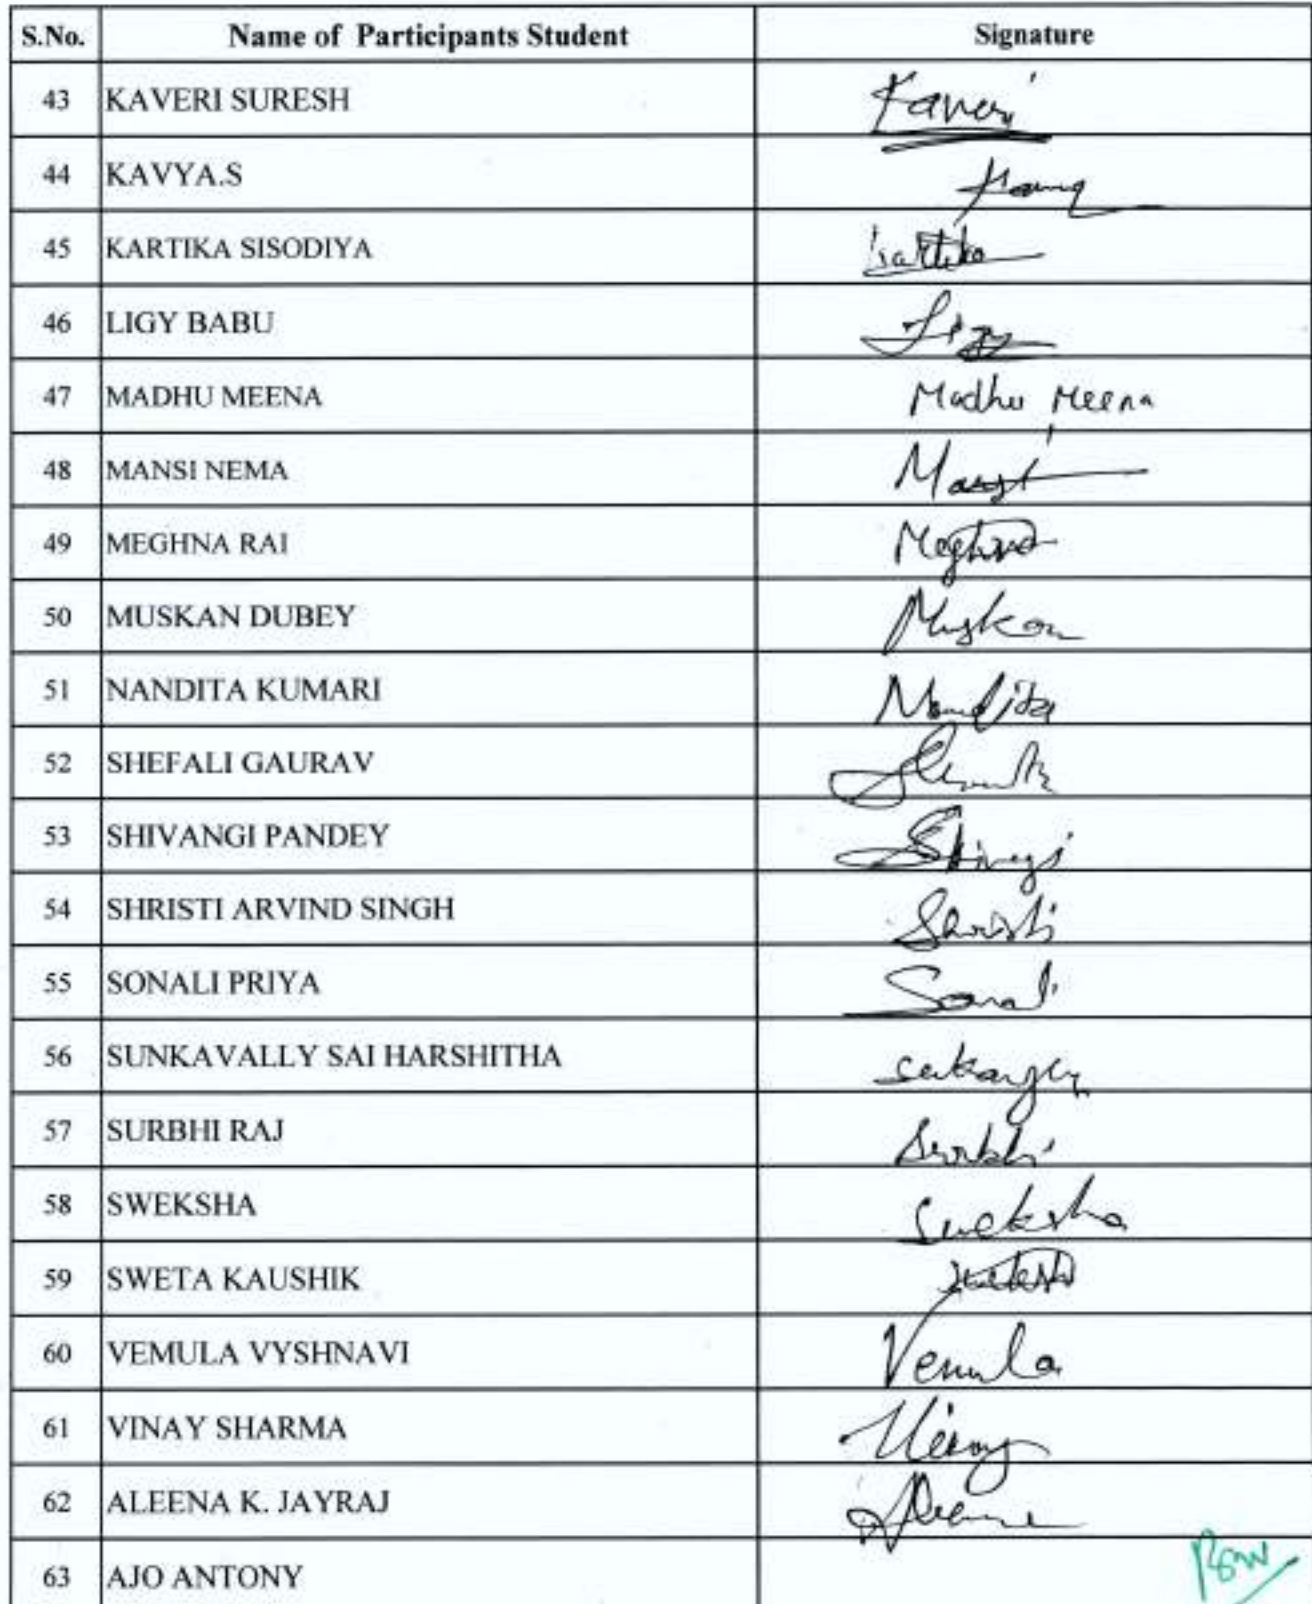 S.No. Name of Participants Student Signature
43 KAVERI SURESH Kaveri
44 KAVYA.S
45 KARTIKA SISODIYA Kartika
46 LIGY BABU Ligy
47 MADHU MEENA Madhu Meena
48 MANSI NEMA Mansi
49 MEGHNA RAI Meghna
50 MUSKAN DUBEY Muskan
51 NANDITA KUMARI Nandita
52 SHEFALI GAURAV
53 SHIVANGI PANDEY Shivangi
54 SHRISTI ARVIND SINGH Shristi
55 SONALI PRIYA Sonali
56 SUNKAVALLY SAI HARSHITHA
57 SURBHI RAJ Surbhi
58 SWEKSHA Sweksha
59 SWETA KAUSHIK
60 VEMULA VYSHNAVI Vemula
61 VINAY SHARMA Vinay
62 ALEENA K. JAYRAJ Aleena
63 AJO ANTONY